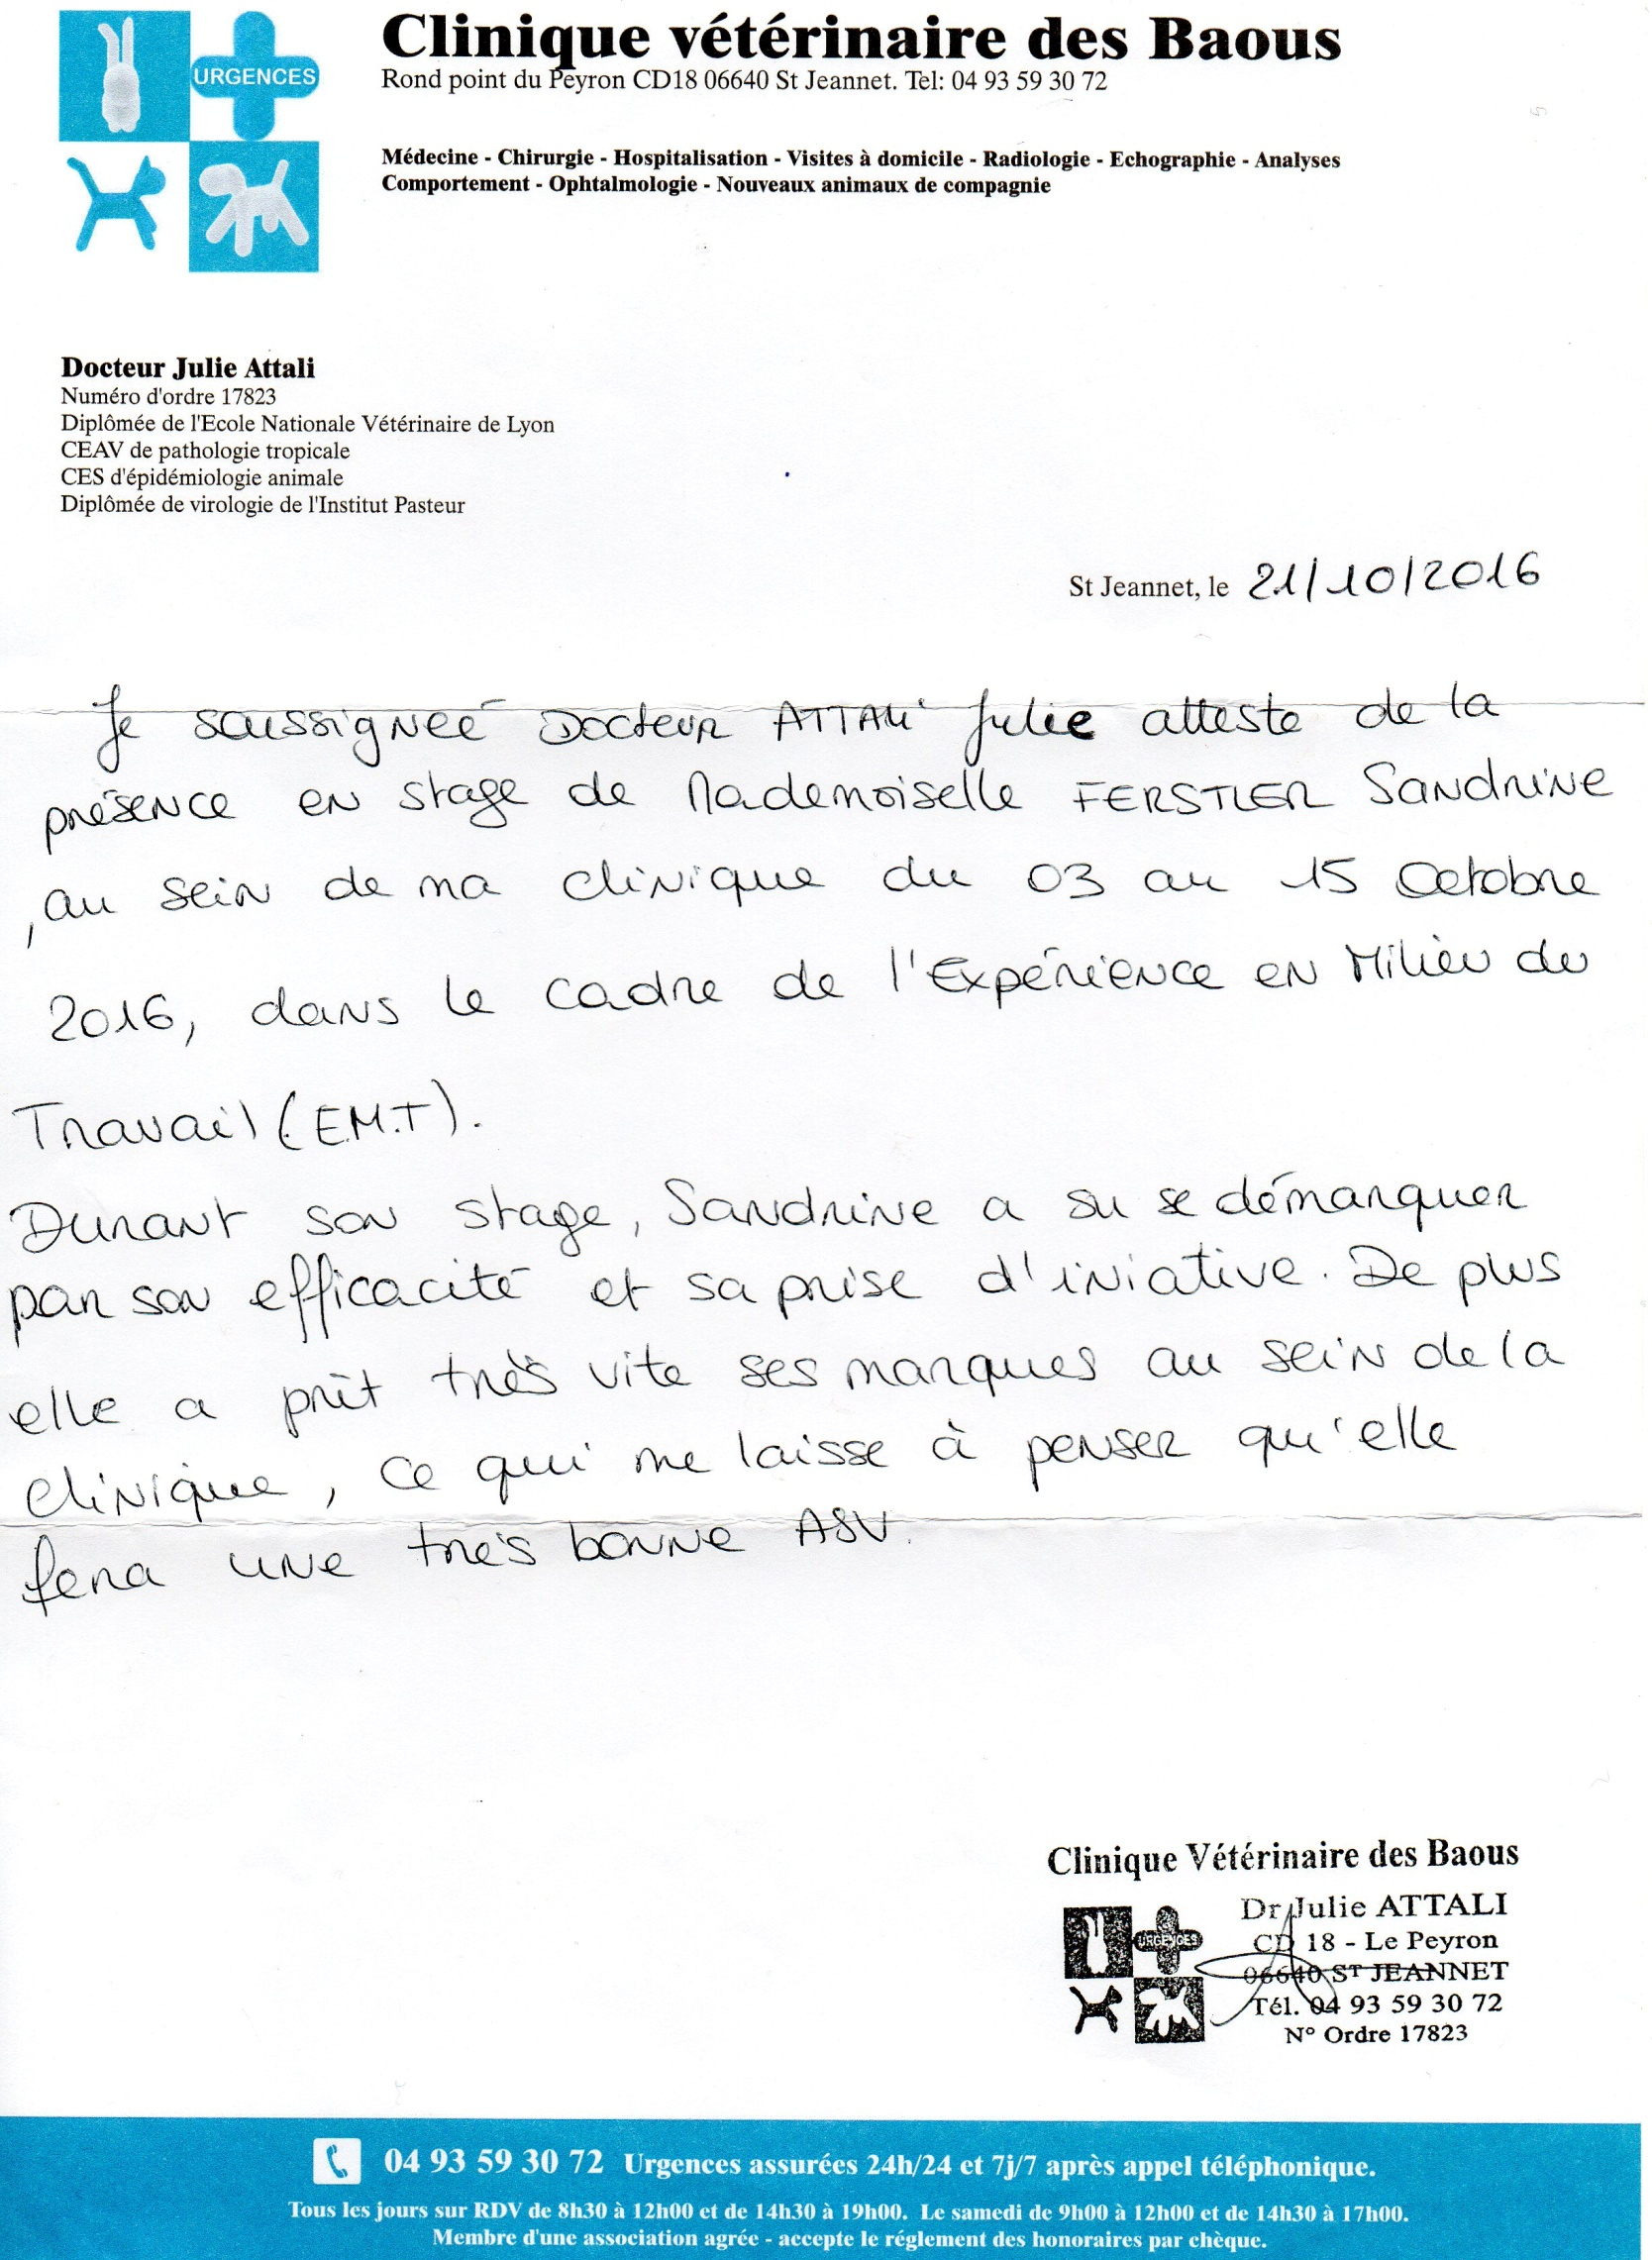 URGENCES
Clinique vétérinaire des Baous
Rond point du Peyron CD18 06640 St Jeannet. Tel: 04 93 59 30 72
Médecine - Chirurgie - Hospitalisation - Visites à domicile - Radiologie - Echographie - Analyses
Comportement - Ophtalmologie - Nouveaux animaux de compagnie
Docteur Julie Attali
Numéro d'ordre 17823
Diplômée de l'Ecole Nationale Vétérinaire de Lyon
CEAV de pathologie tropicale
CES d'épidémiologie animale
Diplômée de virologie de l'Institut Pasteur
St Jeannet, le 21/10/2016
Je soussigneé Docteur ATTALI Julie atteste de la
présence en stage de Mademoiselle FERSTLER Sandrine
, au sein de ma clinique du 03 au 15 Octobre
2016, dans le cadre de l'Expérience en Milieu du
Travail (E.M.T).
Durant son stage, Sandrine a su se démarquer
par son efficacité et sa prise d'iniative. De plus
elle a prit très vite ses marques au sein de la
clinique, ce qui me laisse à penser qu'elle
fera une très bonne ASV.
Clinique Vétérinaire des Baous
URGENCES
Dr Julie ATTALI
CD 18 - Le Peyron
06640 ST JEANNET
Tél. 04 93 59 30 72
N° Ordre 17823
04 93 59 30 72 Urgences assurées 24h/24 et 7j/7 après appel téléphonique.
Tous les jours sur RDV de 8h30 à 12h00 et de 14h30 à 19h00. Le samedi de 9h00 à 12h00 et de 14h30 à 17h00.
Membre d'une association agrée - accepte le réglement des honoraires par chèque.